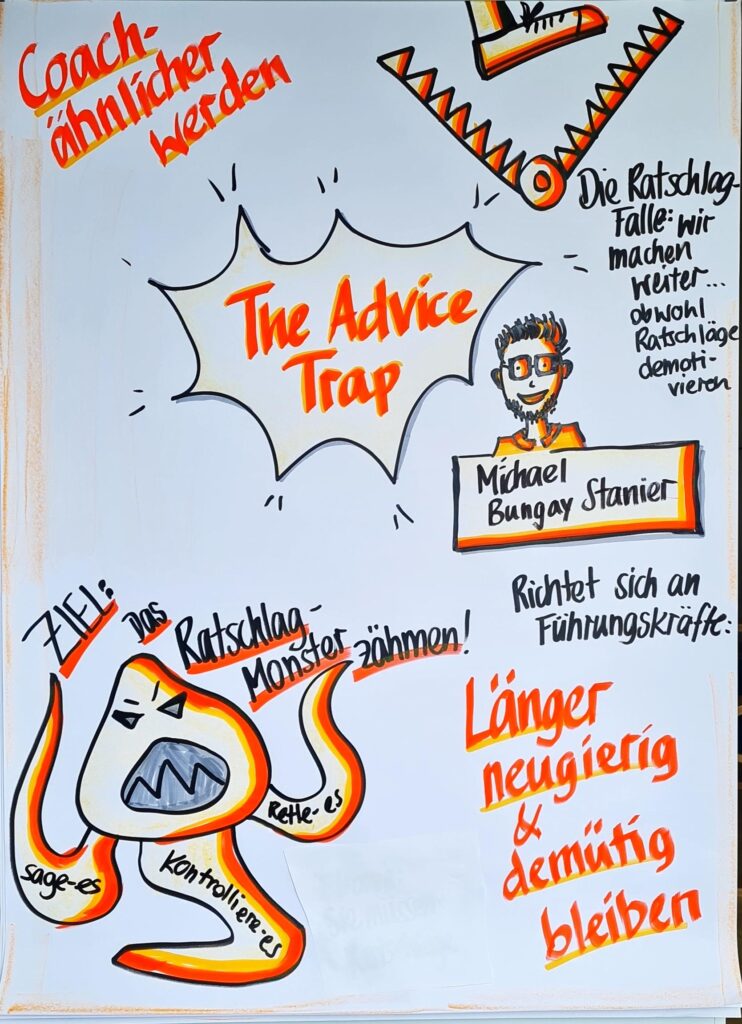 Coach-
ähnlicher
werden
Die Ratschlag-
Falle: wir
machen
weiter...
obwohl
Ratschläge
demoti-
vieren
The Advice
Trap
Michael
Bungay Stanier
Richtet sich an
Führungskräfte:
Länger
neugierig
&
demütig
bleiben
ZIEL:
Das
Ratschlag-
Monster zähmen!
sage-es
Kontrolliere-es
Rette-es